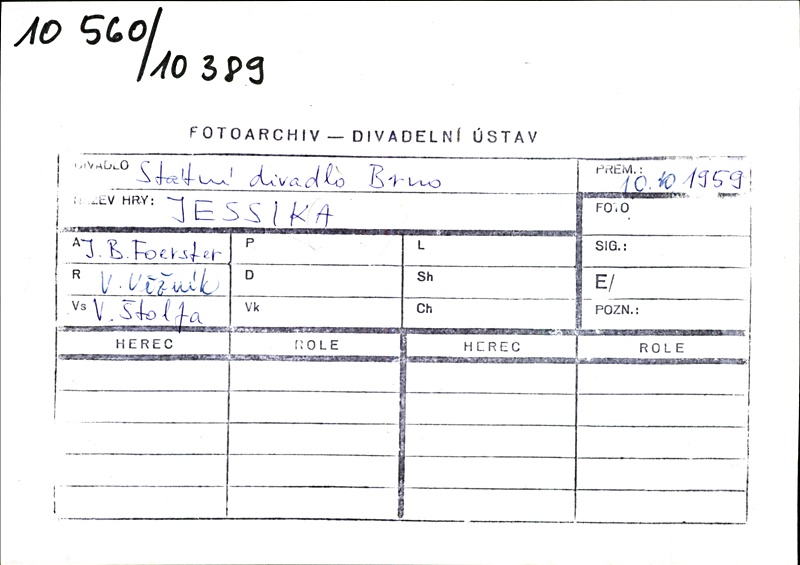 10 560/
10 389
FOTOARCHIV — DIVADELNÍ ÚSTAV
DIVADLO Státní divadlo Brno PREM.: 10.10 1959
NÁZEV HRY: JESSIKA FOTO
A J. B. Foerster P L SIG.:
R V. Věžník D Sh E/
Vs V. Štolfa Vk Ch POZN.:
HEREC ROLE HEREC ROLE